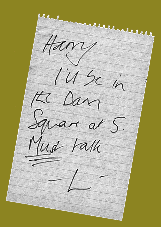 Harry
I'll be in
the Dam
Square at 5
Must talk
- L -